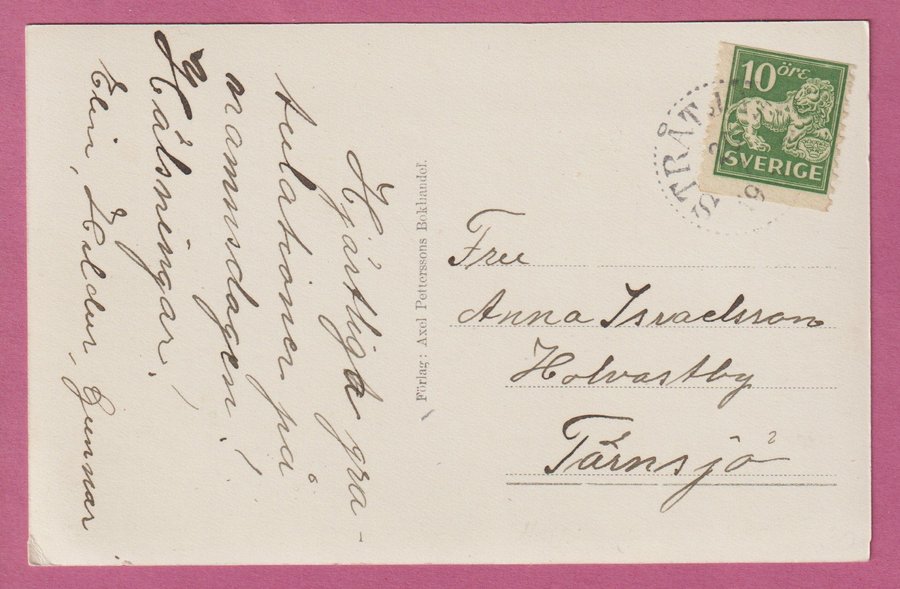 Hjärtliga gra-
tulationer på
namnsdagen!
Hälsningar.
Elin, Hildur, Gunnar
Förlag: Axel Petterssons Bokhandel.
10 öre
SVERIGE
Fru
Anna Israelsson
Holvastby
Tärnsjö